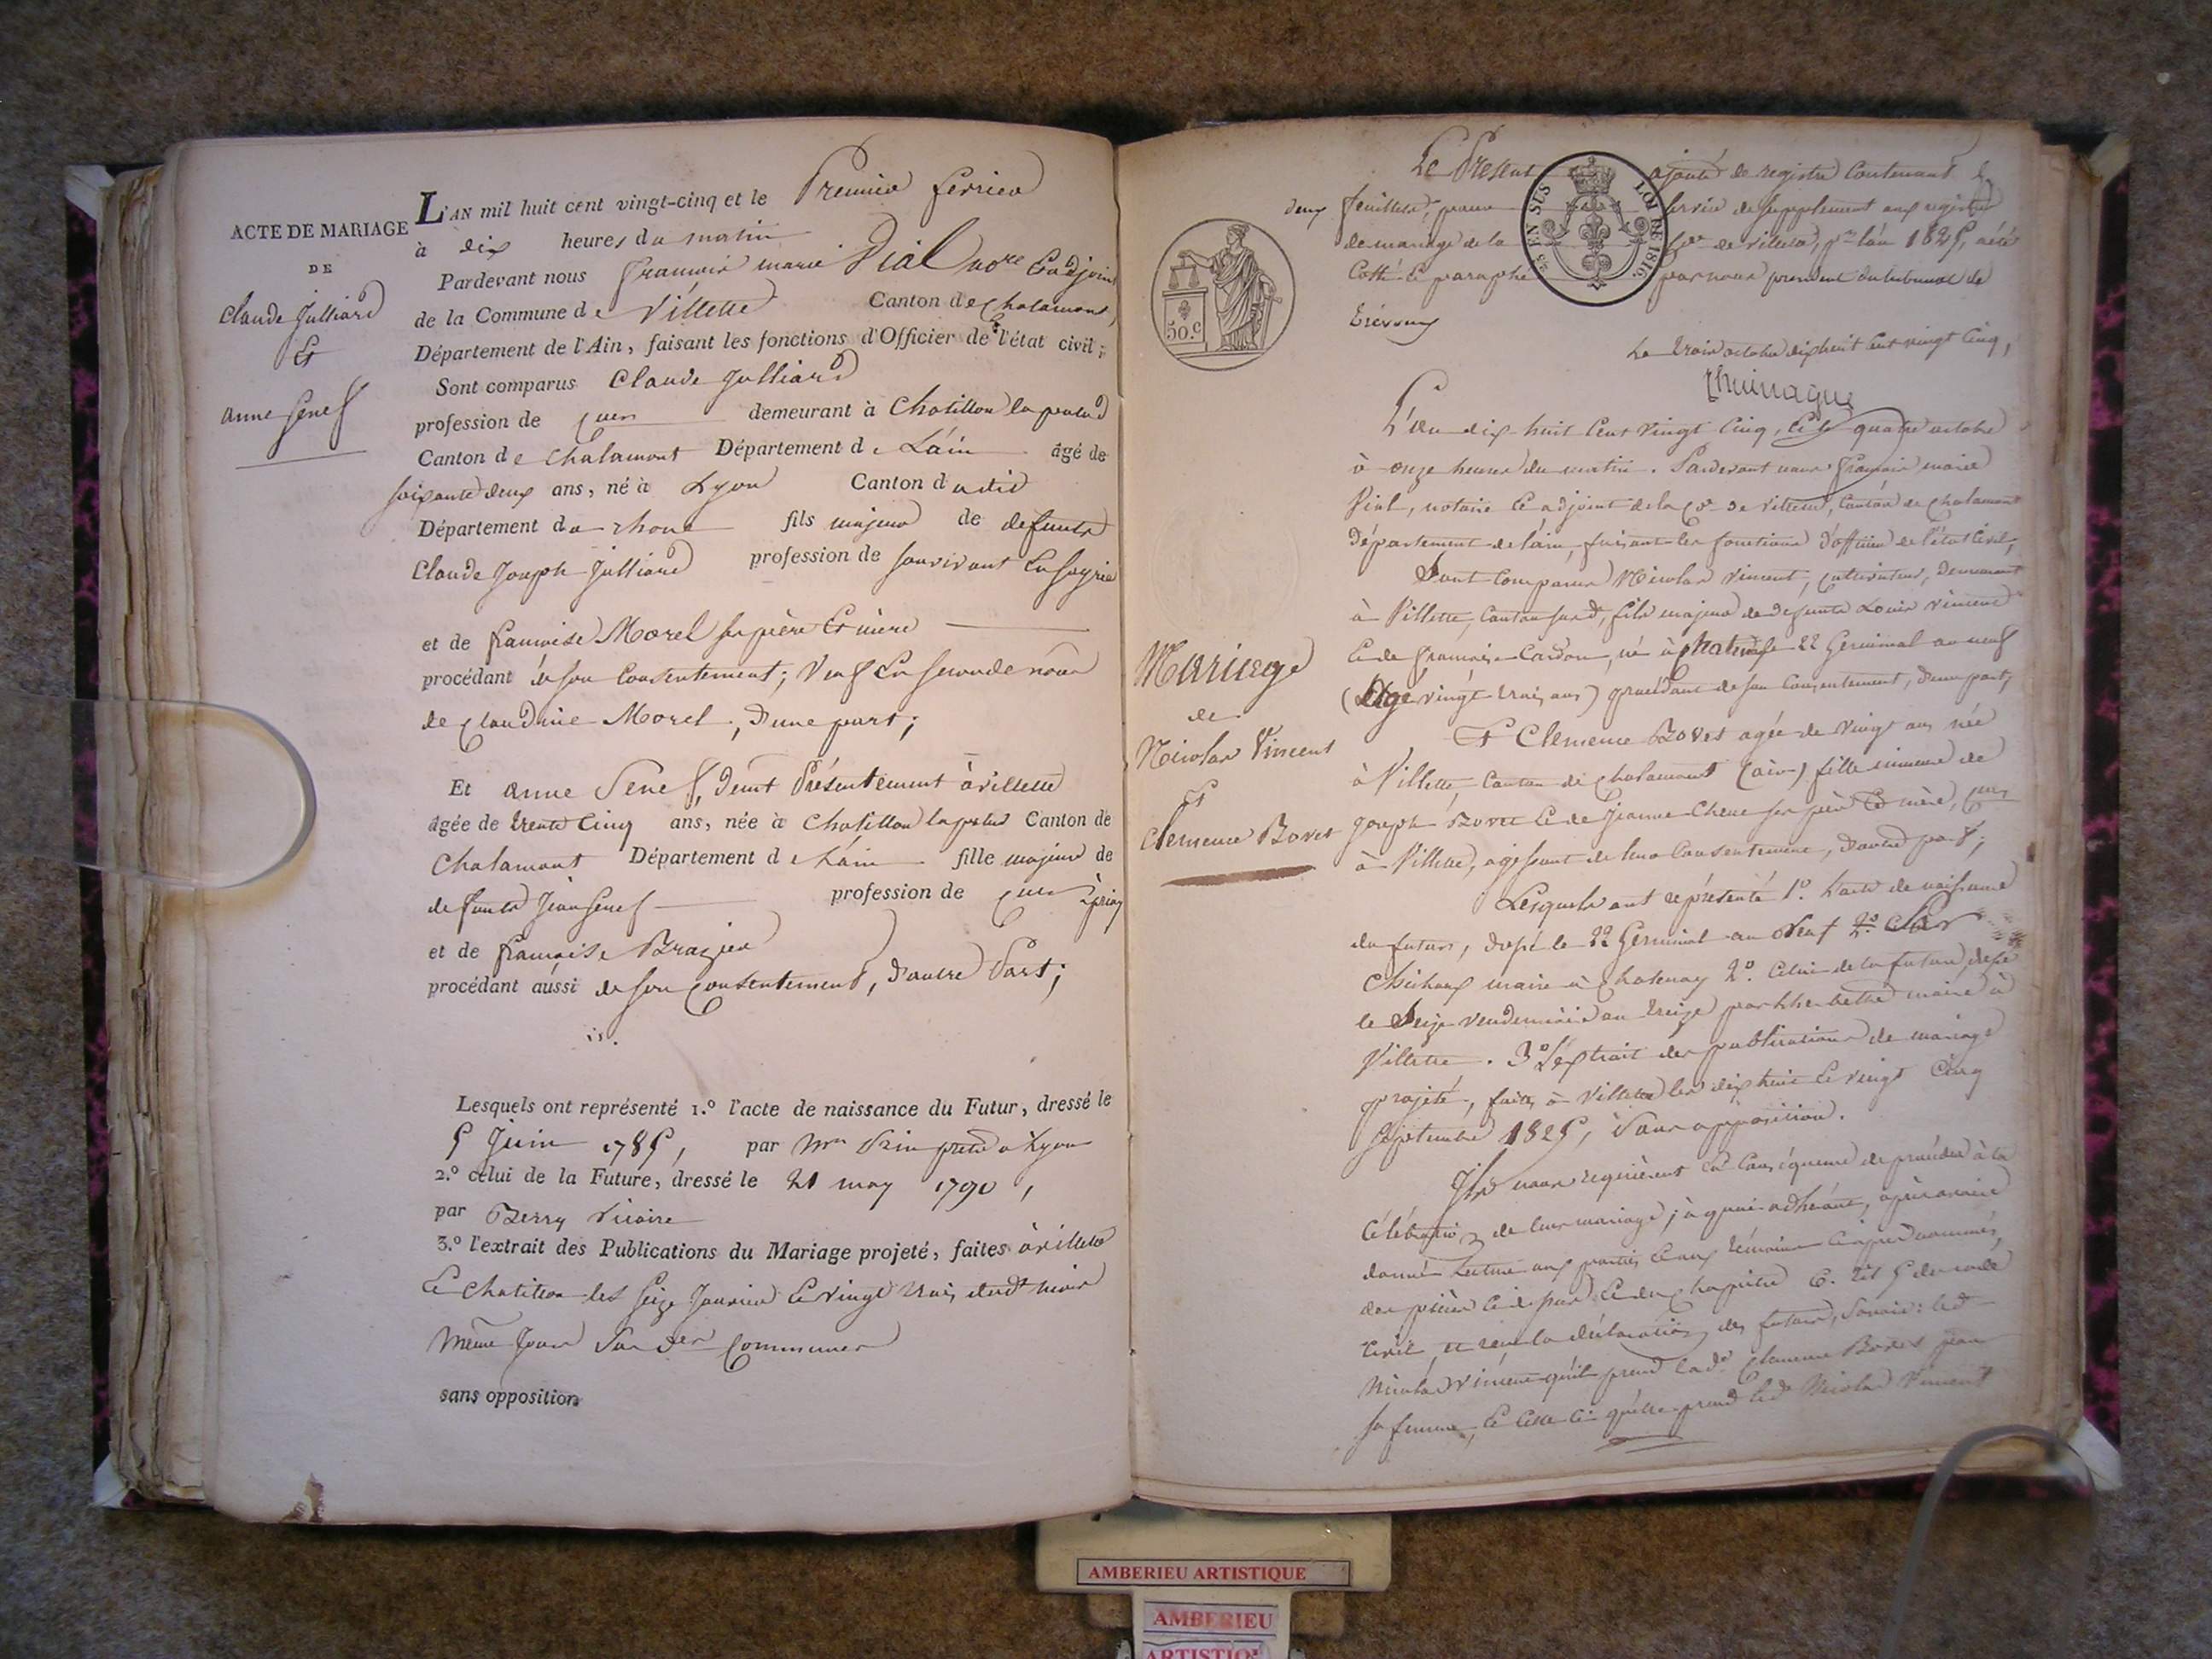 ACTE DE MARIAGE
DE
Claude Julliard
Et
anne Genef
L'AN mil huit cent vingt-cinq et le Premier fevrier
à dix heures du matin
Pardevant nous françois marie Vial no.re & adjoint
de la Commune de Villette Canton de Chalamont,
Département de l'Ain, faisant les fonctions d'Officier de l'état civil;
Sont comparus Claude Julliard
profession de demeurant à Chatillon la palud
Canton de Chalamont Département de L'ain âgé de
soixante deux ans, né à Lyon Canton dudit
Département du rhone fils majeur de defunts
Claude Joseph Julliard profession de
et de françoise Morel ses père Et mère
procédant de son Consentement; Veuf En seconde
de Claudine Morel, d'une part;
Et anne Genef, Présentement à villette
âgée de trente Cinq ans, née à Chatillon la palud Canton de
Chalamont Département de L'ain fille majeure de
defunts Jean Genef profession de
et de françoise Brazier
procédant aussi de son Consentement, d'autre Part;
Lesquels ont représenté 1.º l'acte de naissance du Futur, dressé le
5 Juin 1785, par à Lyon
2.º celui de la Future, dressé le 21 may 1790,
par Berry vicaire
3.º l'extrait des Publications du Mariage projeté, faites à villette
Et Chatillon les Seize Janvier Et vingt trois dud.t mois
Même Jour Communes
sans opposition
Le Présent ajouté de registre Contenant
deux feuillets, pour servir de supplement aux registres
de mariage de la de villette, pr l'an 1825, a été
Cotté & paraphé par nous president du tribunal de
Trévoux
EN SUS LOI DE 1816.
50.c
Le trois octobre dix huit Cent vingt Cinq,
L'an dix huit Cent vingt Cinq, & le quatre octobre
à onze heures du matin. Pardevant nous françois marie
Vial, notaire & adjoint de la de villette, Canton de Chalamont
département de l'ain, faisant les fonctions d'officier de l'état Civil,
Sont Comparus Nicolas Vincent, cultivateur, demeurant
à Villette, Canton susd, fils majeur de defunts Louis Vincent
& de françoise Cardon, né à Chatenay le 22 Germinal an neuf
(Agé vingt trois ans) procédant de son Consentement, d'une part;
Et Clemence Bovet agée de vingt ans née
à Villette Canton de Chalamont (ain) fille mineure de
Joseph Bovet & de Jeanne Chene ses père & mère,
à Villette, agissant de leur Consentement, d'autre part;
Mariage
de
Nicolas Vincent
Et
Clemence Bovet
Lesquels ont représenté 1º. L'acte de naissance
du futur, dressé le 22 Germinal an Neuf
maire à Chatenay 2º. Celui de la future, dressé
le Seize vendemiaire an treize par maire à
Villette. 3º L'extrait des publications de mariage
projeté, faites à Villette les dix huit & vingt Cinq
Septembre 1825, Sans opposition.
Ils nous requièrent En Conséquence de procéder à la
Célébration de leur mariage; à quoi adhérant, après avoir
donné Lecture aux parties & aux témoins ci après nommés,
des pièces ci dessus & du chapitre 6. du code
Civil, et reçu la déclaration des futurs, Savoir: led
Nicolas Vincent qu'il prend lad.e Clemence Bovet pour
sa femme, & celle ci qu'elle prend led Nicolas Vincent
AMBERIEU ARTISTIQUE
AMBERIEU
ARTISTIQUE